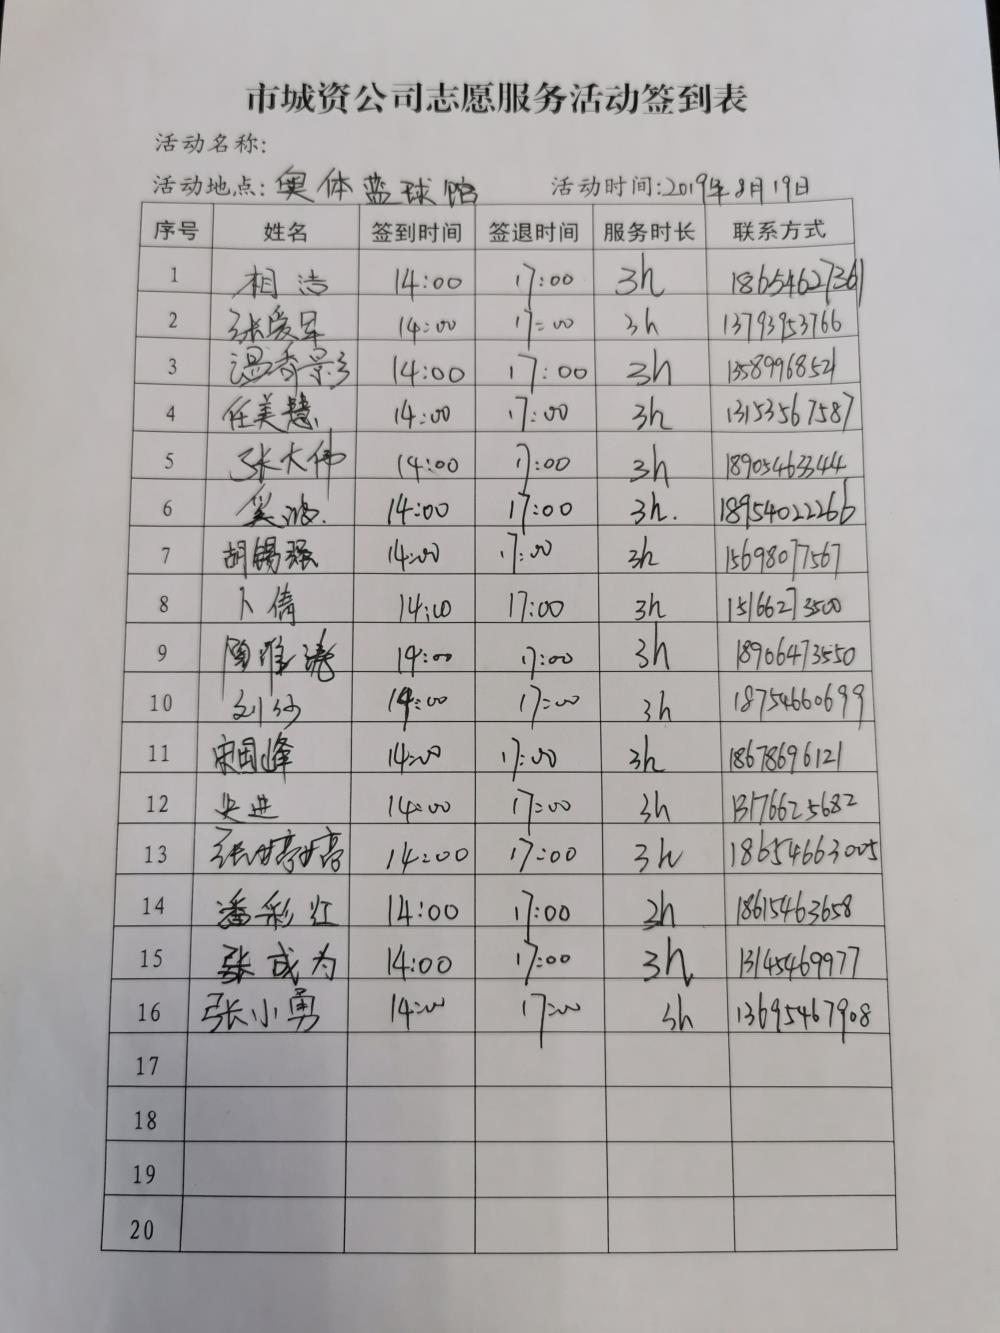 市城资公司志愿服务活动签到表
活动名称:
活动地点:奥体蓝球馆 活动时间:2019年8月19日
序号 姓名 签到时间 签退时间 服务时长 联系方式
1 相浩 14:00 17:00 3h 18654627361
2 张爱军 14:00 17:00 3h 13793953766
3 温香影 14:00 17:00 3h 13589968521
4 任美慧 14:00 17:00 3h 13153567587
5 张大伟 14:00 17:00 3h 18905463344
6 14:00 17:00 3h. 18954022266
7 胡锡强 14:00 17:00 3h 15698077567
8 卜倩 14:00 17:00 3h 15166273500
9 陶维涛 14:00 17:00 3h 18906473550
10 刘沙 14:00 17:00 3h 18754660699
11 宋国峰 14:00 17:00 3h 18678696121
12 史进 14:00 17:00 3h 13176625682
13 张婷婷 14:00 17:00 3h 18654663005
14 潘彩红 14:00 17:00 3h 18615463658
15 张成为 14:00 17:00 3h 13145469977
16 张小勇 14:00 17:00 3h 13695467908
17
18
19
20